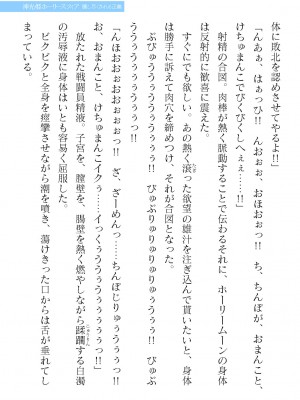 体に敗北を認めさせてやるよ!!
「んあぁ、はぁっ穴!! んおぉぉ、おほおぉっ!! ち、ちんぽが、おまんこと、
けちゅまんこでびくびくし～へぇぇ……!!」
射精の合図。肉棒が熱く脈動することで伝わるそれに、ホーリームーンの身体
は反射的に歓喜に震えた。
すぐにでも欲しい。あの熱く滾った欲望の雄汁を注ぎ込んで貰いたいと、身体
は勝手に訴えて肉穴を締めつけ、それが合図となった。
ぶびゅううううううっ!! びゅぶりゅりゅりゅりゅぅううっ!! びゅぶ
「んほおおおおぉぉぉっ!! ざ、ざーめんっ……ちんぽじりゅううううっ!!
お、おまんこと、けちゅまんこイクぅ……イっくぅううぅぅうぅぅぅっ!!」
放たれた戦闘員精液。子宮を、膣壁を、腸壁を熱く燃やしながら蹂躙する白濁
の汚辱液に身体はいとも容易く屈服した。
ビクビクと全身を痙攣させながら潮を噴き、蕩けきった口からは舌が垂れてし